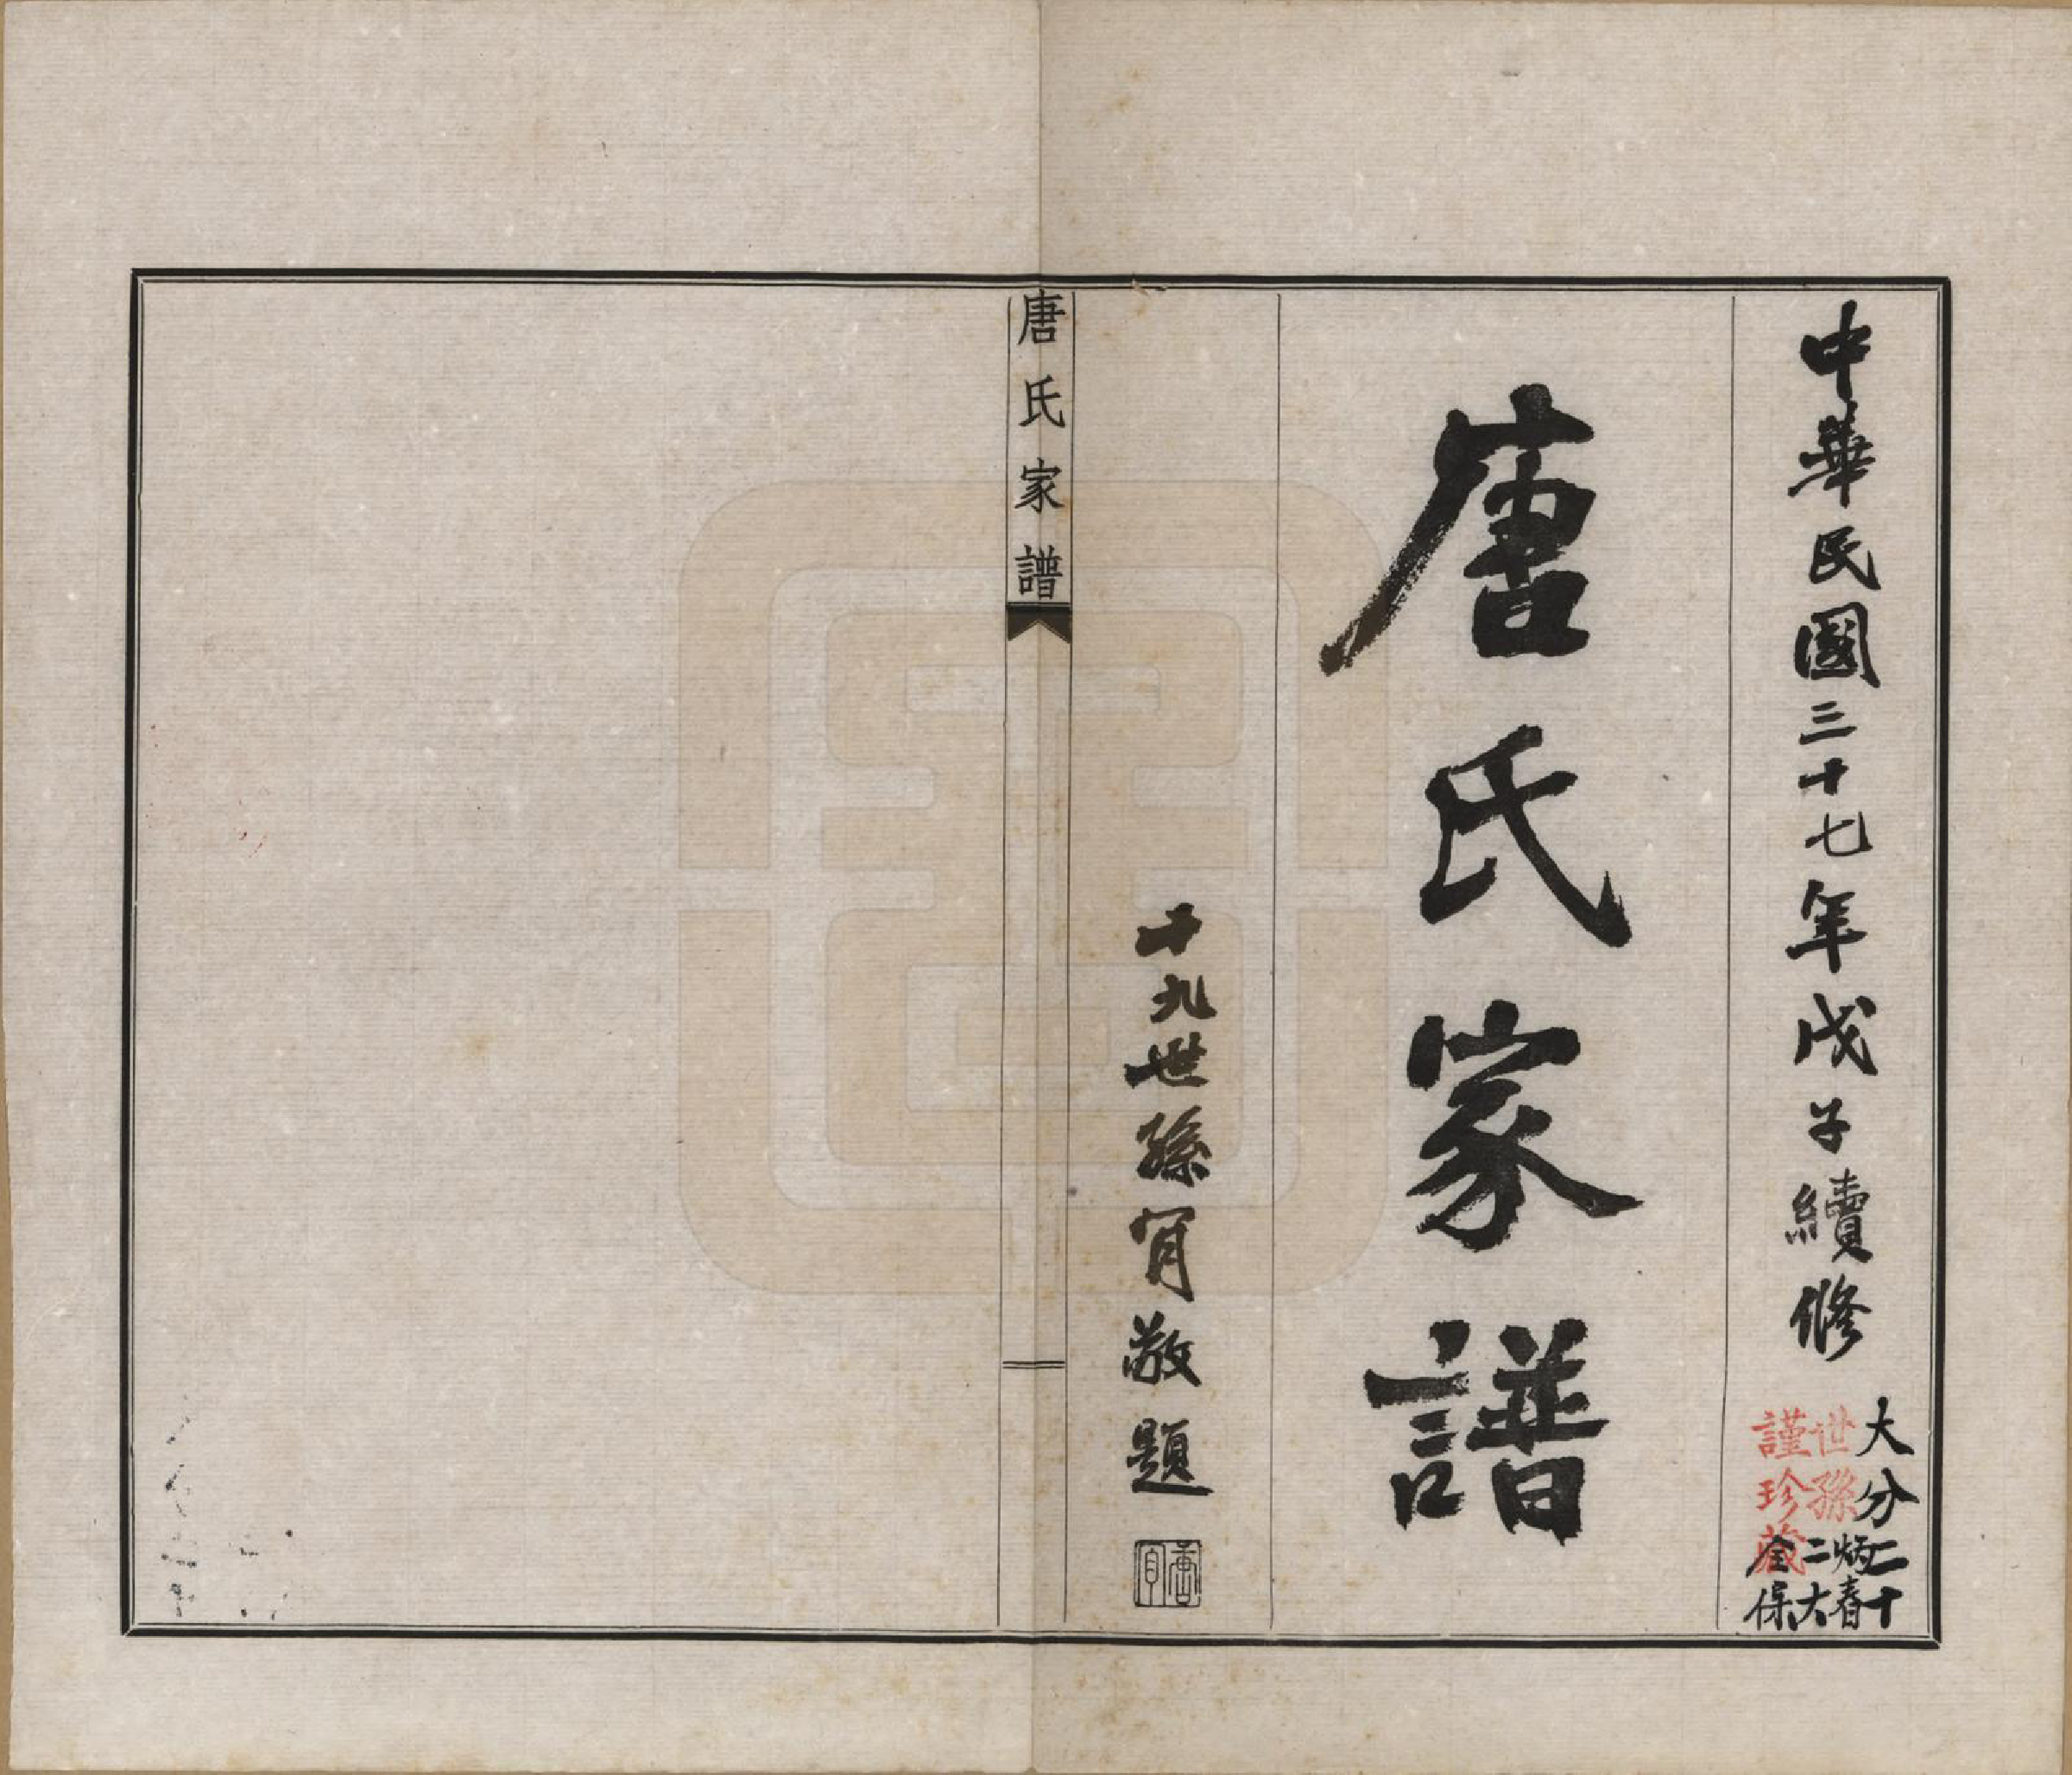 中華民國三十七年戊子續修
大分二十
世孫炳春
二大
謹珍藏
全保
唐氏家譜
十九世孫肎敬題
唐肎
唐氏家譜